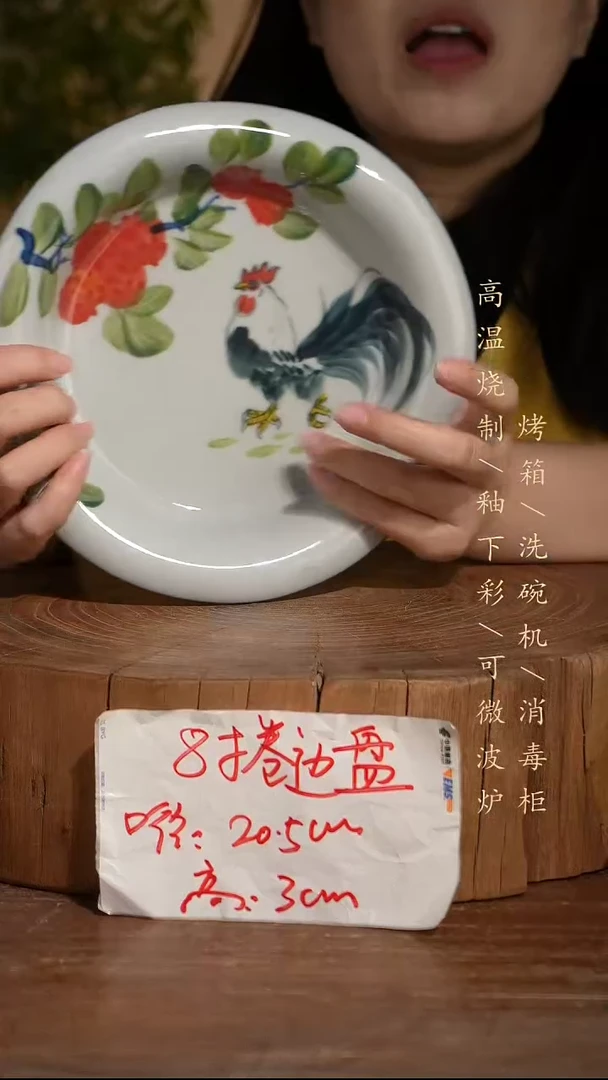 高温烧制/釉下彩/可微波炉
烤箱/洗碗机/消毒柜
8寸卷边盘
口径: 20.5cm
高: 3cm
EMS